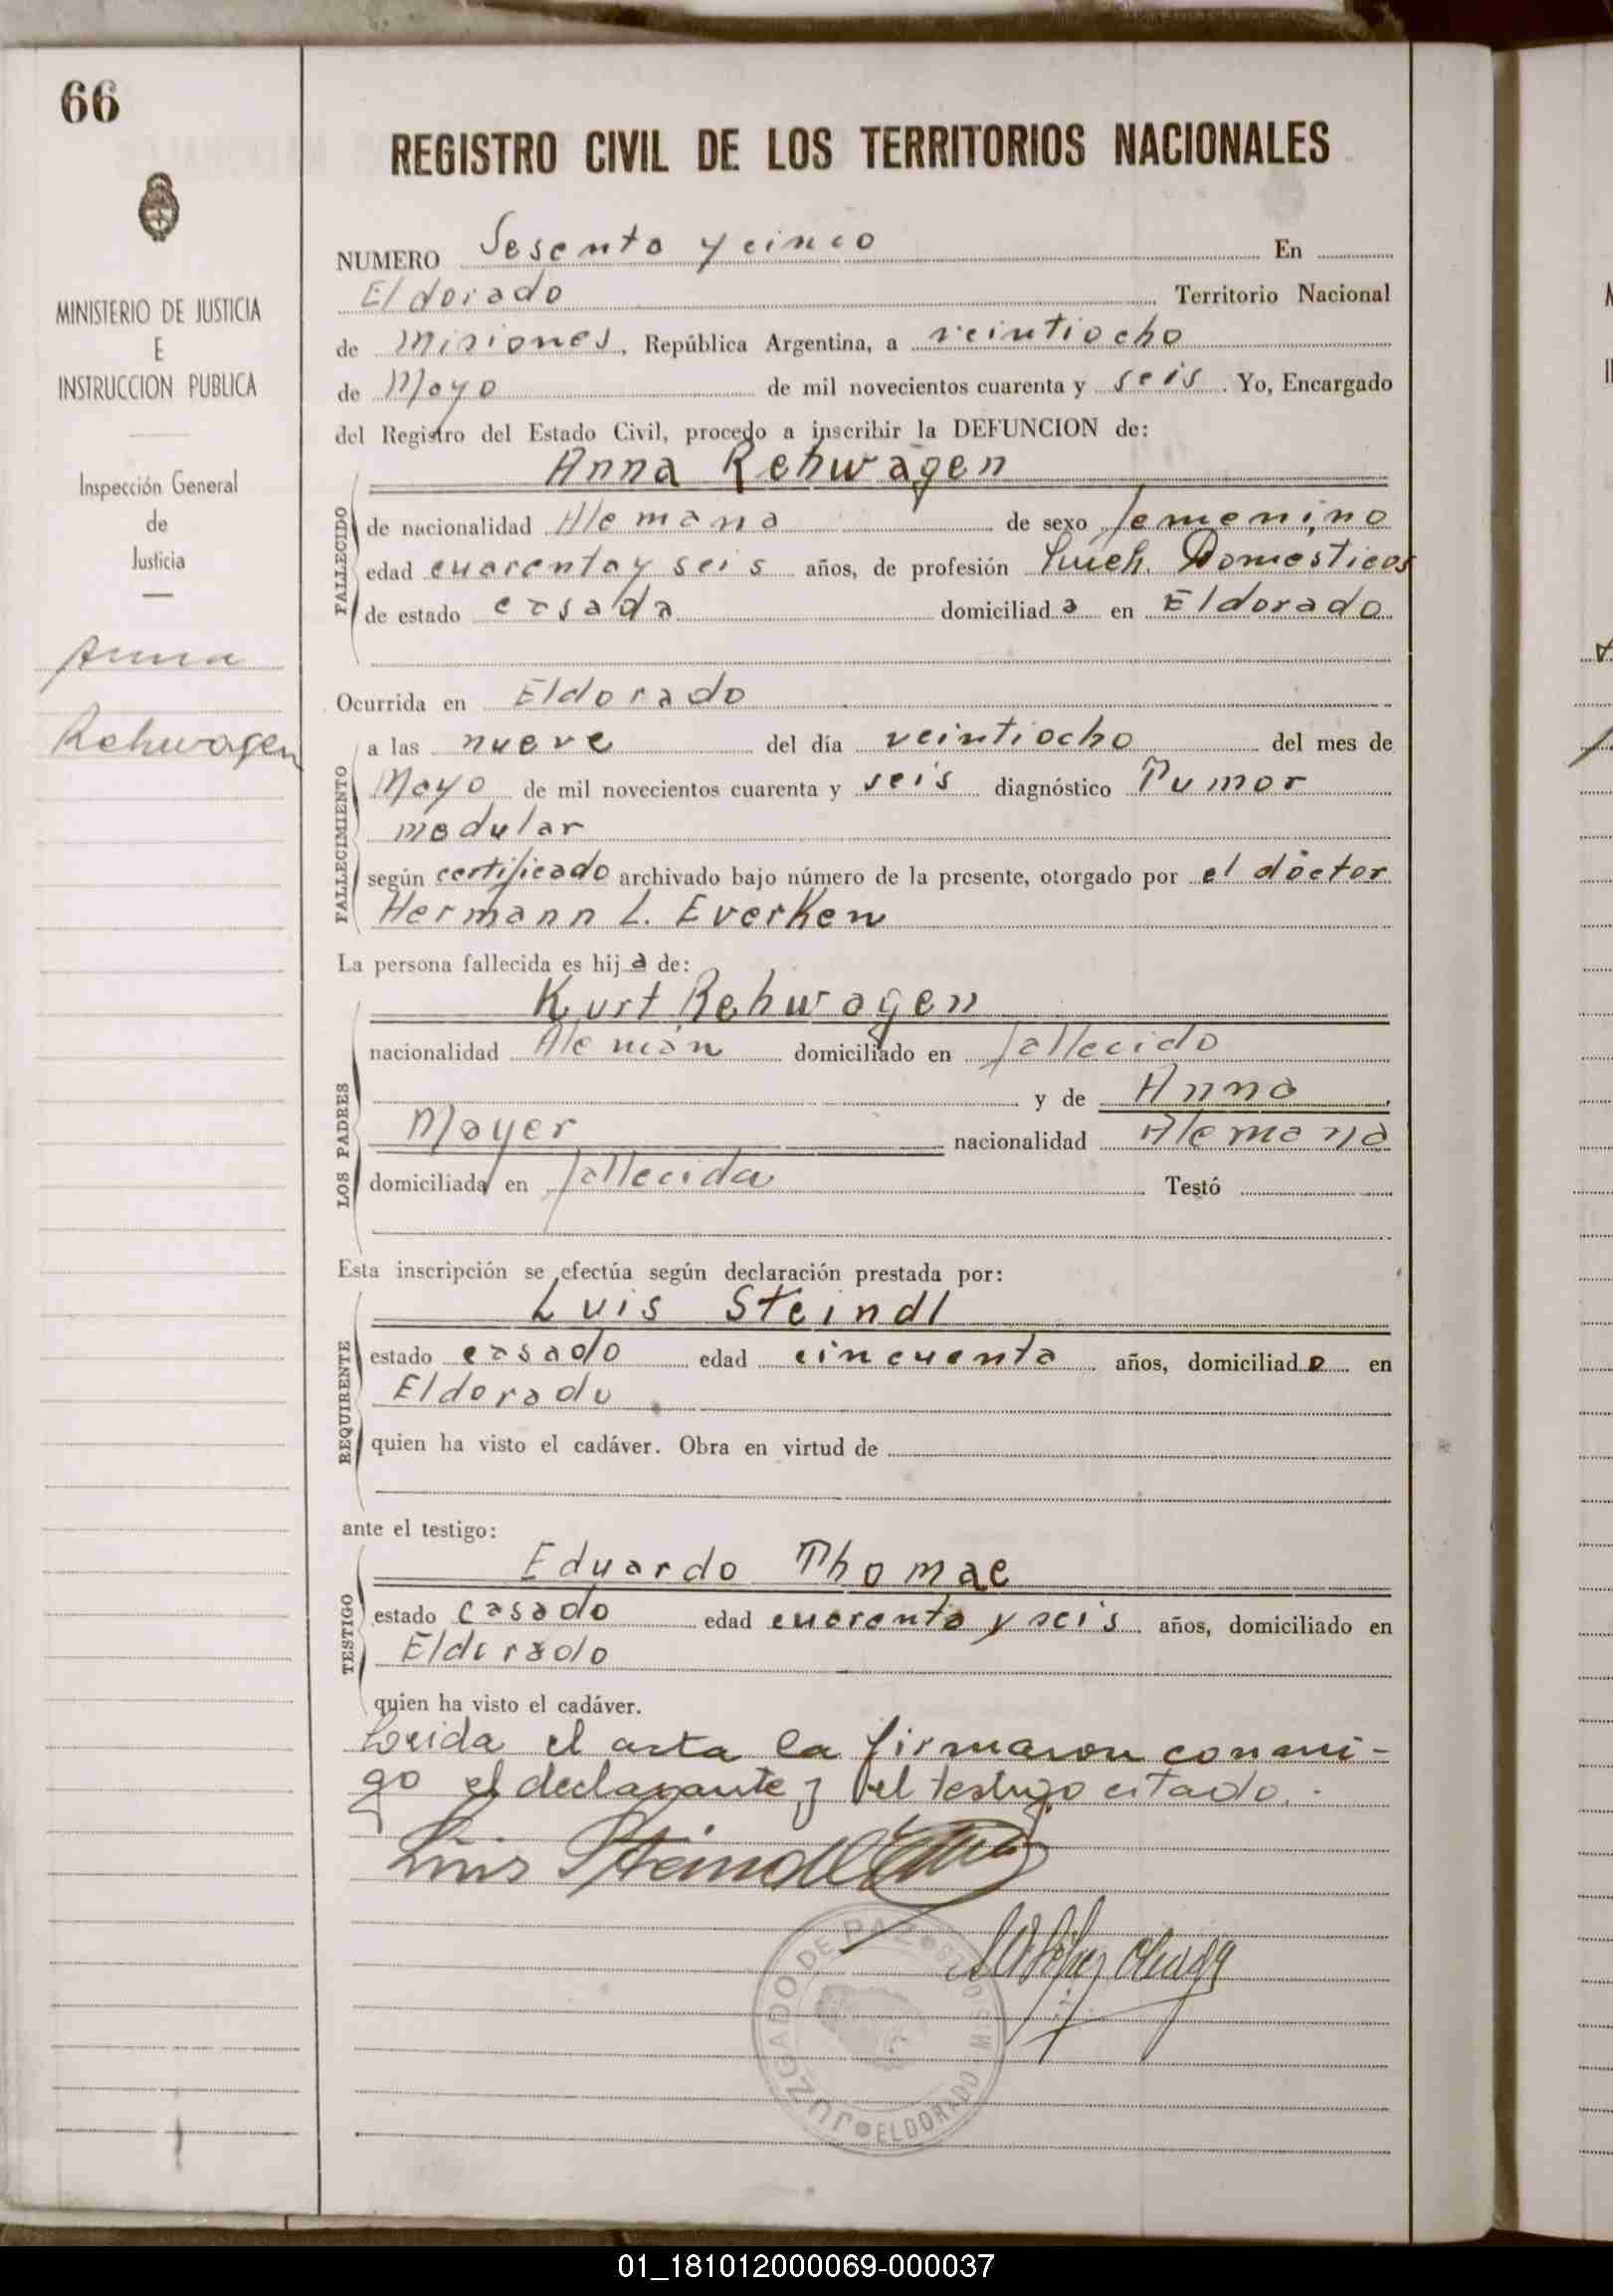 66
MINISTERIO DE JUSTICIA
E
INSTRUCCION PUBLICA
Inspección General
de
Justicia
Anna
Rehwagen
REGISTRO CIVIL DE LOS TERRITORIOS NACIONALES
NUMERO Sesenta y cinco En
Eldorado Territorio Nacional
de Misiones, República Argentina, a veintiocho
de Mayo de mil novecientos cuarenta y seis. Yo, Encargado
del Registro del Estado Civil, procedo a inscribir la DEFUNCION de:
Anna Rehwagen
FALLECIDO
de nacionalidad Alemana de sexo femenino
edad cuarenta y seis años, de profesión Domesticos
de estado casada domiciliada en Eldorado
Ocurrida en Eldorado
FALLECIMIENTO
a las nueve del día veintiocho del mes de
Mayo de mil novecientos cuarenta y seis diagnóstico Tumor
medular
según certificado archivado bajo número de la presente, otorgado por el doctor
Hermann L. Everken
La persona fallecida es hija de:
LOS PADRES
Kurt Rehwagen
nacionalidad Alemán domiciliado en fallecido
y de Anna
Mayer nacionalidad Alemana
domiciliada en fallecida Testó
Esta inscripción se efectúa según declaración prestada por:
REQUIRENTE
Luis Steindl
estado casado edad cincuenta años, domiciliado en
Eldorado
quien ha visto el cadáver. Obra en virtud de
ante el testigo:
TESTIGO
Eduardo Thomae
estado casado edad cuarenta y seis años, domiciliado en
Eldorado
quien ha visto el cadáver.
Leida el acta la firmaron conmi-
go el declarante y el testigo citado.-
Luis Steindl
JUZGADO DE PAZ MISIONES ELDORADO
01_181012000069-000037